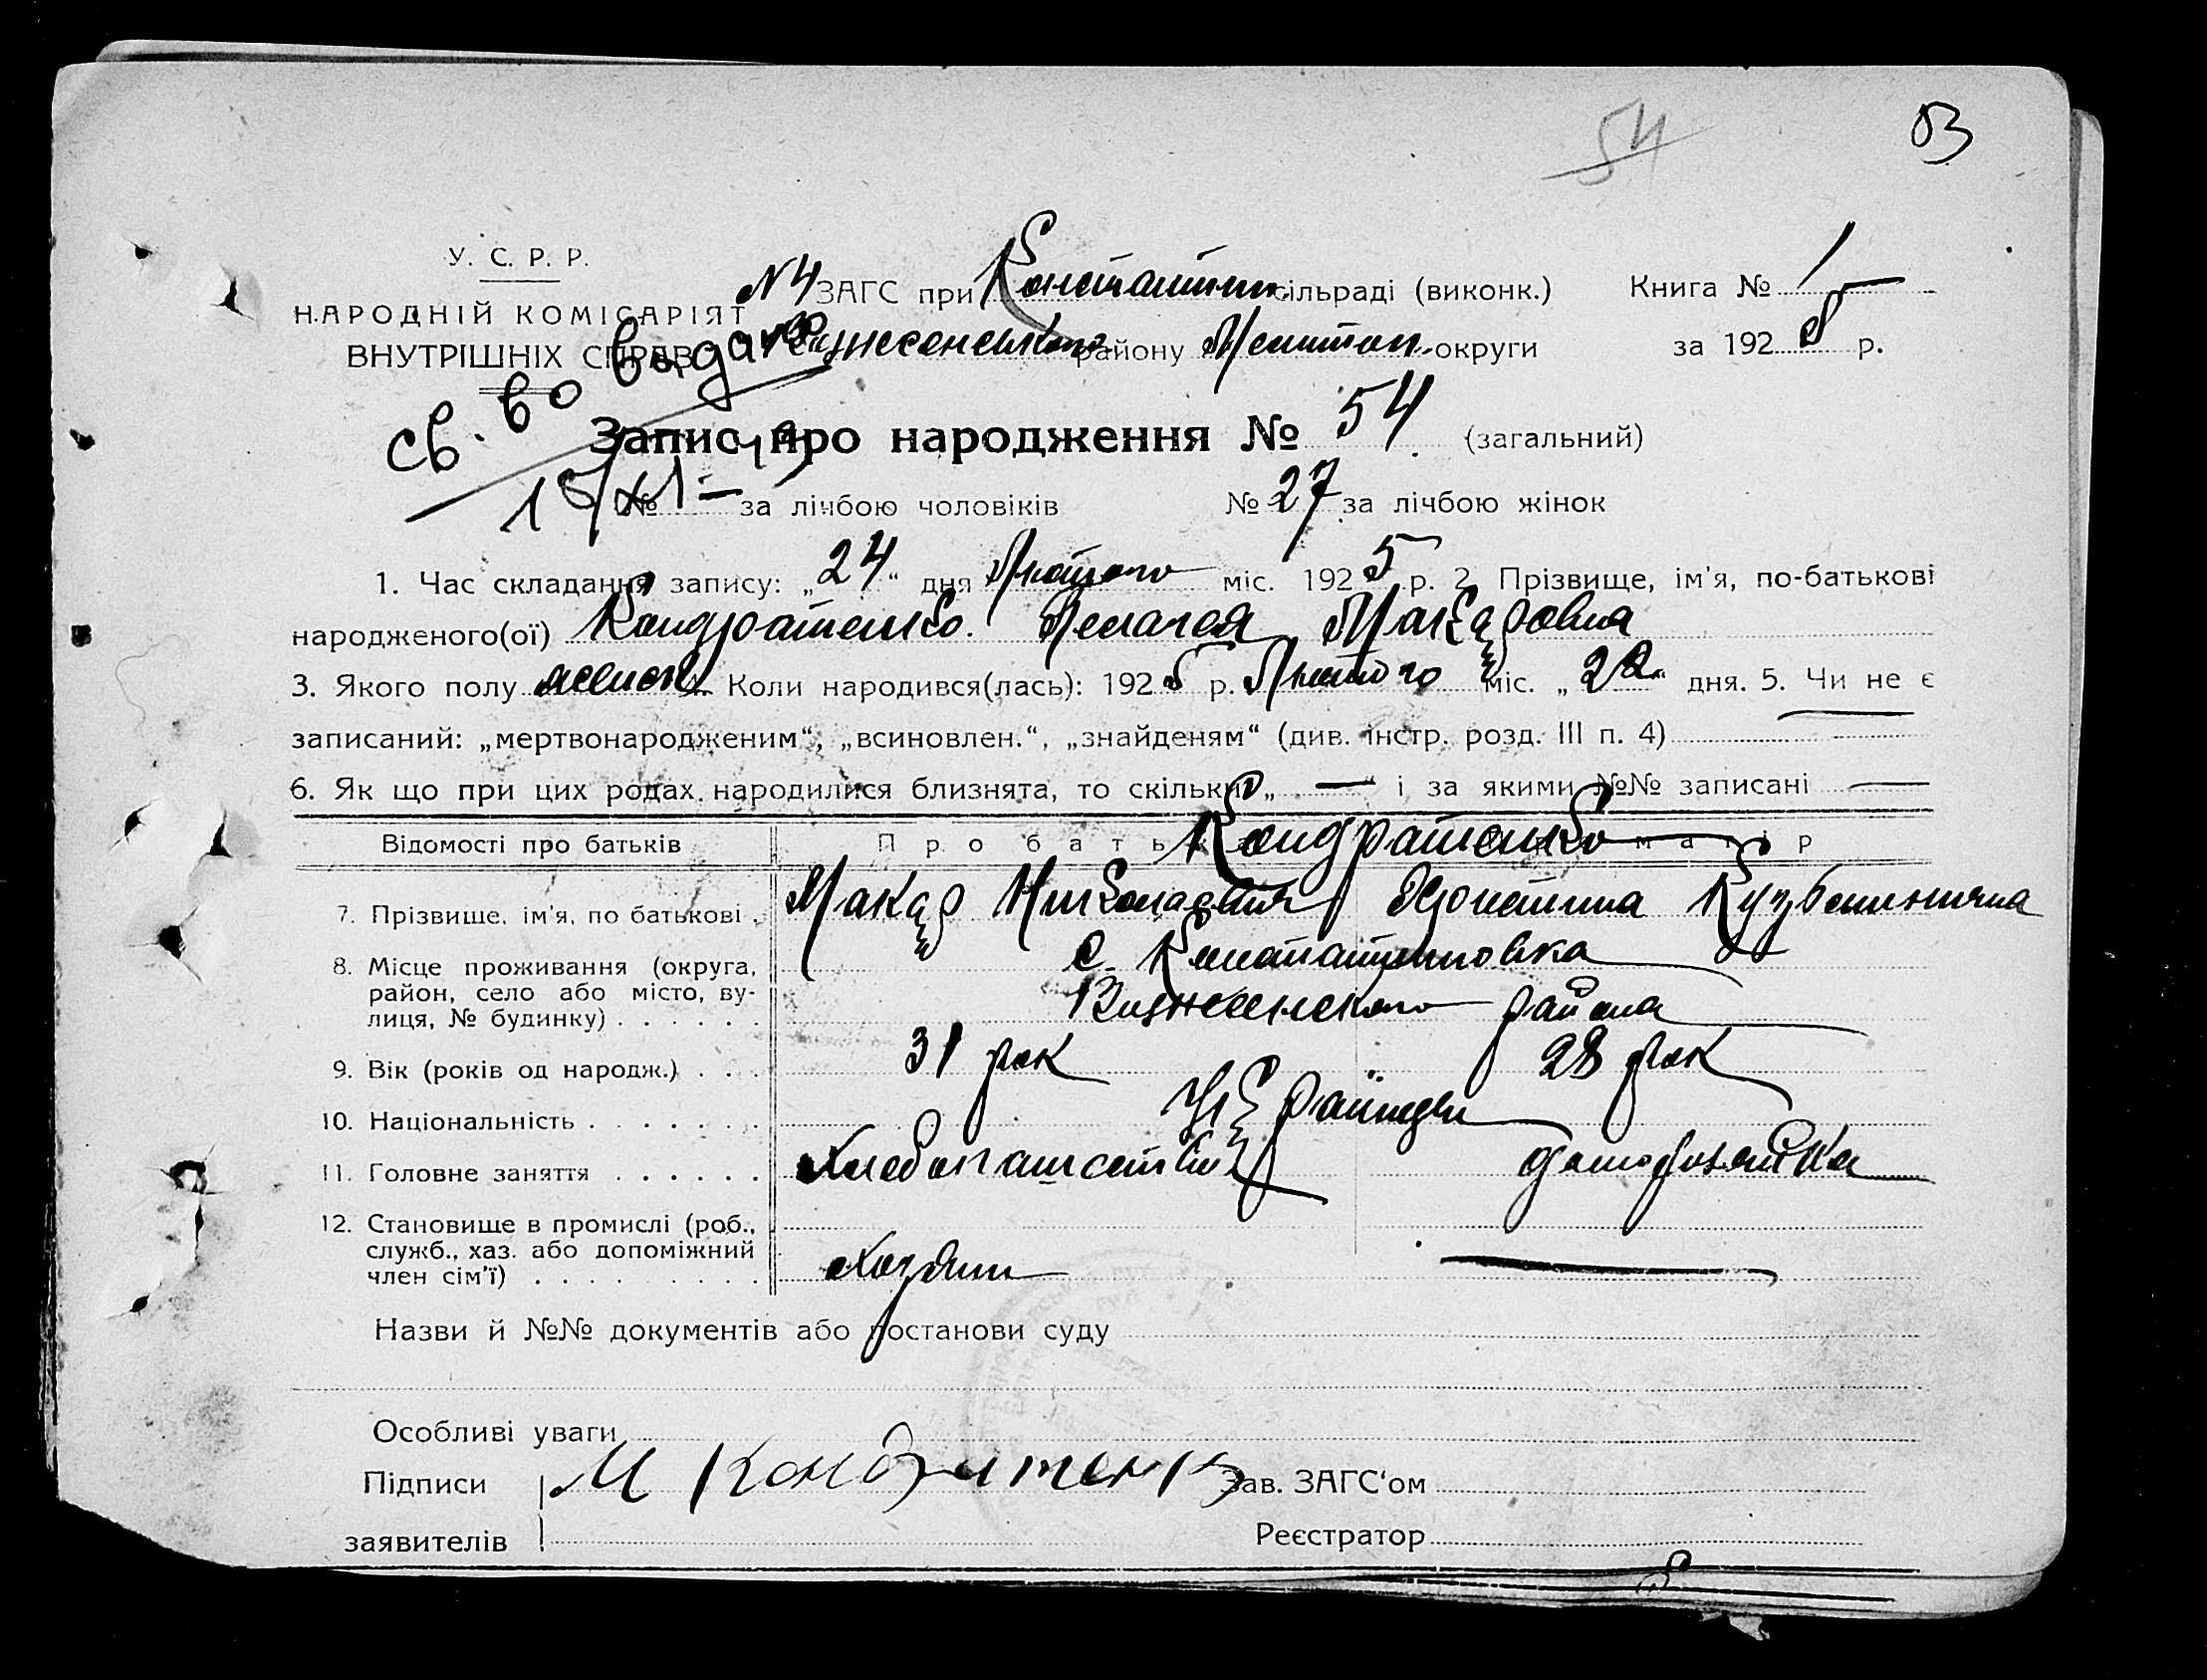 54 53
У. С. Р. Р.
НАРОДНІЙ КОМІСАРІЯТ
ВНУТРІШНІХ СПРАВ
N4 ЗАГС при Константин. сільраді (виконк.) Книга № 1
району округи за 1925 р.
св. во выдано
Запис про народження № 54 (загальний)
№ — за лічбою чоловіків № 27 за лічбою жінок
1. Час складання запису: „24“ дня Лютого міс. 1925 р. 2. Прізвище, ім'я, по-батькові
народженого(ої) Кондратенко Пелагея Макаровна
3. Якого полу Коли народився(лась): 1925 р. Лютого міс. „22“ дня. 5. Чи не є
записаний: „мертвонародженим“, „всиновлен.“, „знайденям“ (див. інстр. розд. III п. 4) —
6. Як що при цих родах народилися близнята, то скільки „ — “ і за якими №№ записані —
Відомості про батьків Про батька Кондратенко матір
7. Прізвище, ім'я, по батькові . Макар Николаевич
8. Місце проживання (округа, район, село або місто, вулиця, № будинку) . . . . . . с. Константиновка
района
9. Вік (років од народж.) . . . 31 рок 28 рок
10. Національність . . . . . . . Українцы
11. Головне заняття . . . . . . Хлебопашество домохозяйка
12. Становище в промислі (роб., служб., хаз. або допоміжний член сім'ї) . . . . . . . . . Хозяин —
Назви й №№ документів або постанови суду
Особливі уваги
Підписи М Кондратенко Зав. ЗАГС'ом
заявителів Реєстратор